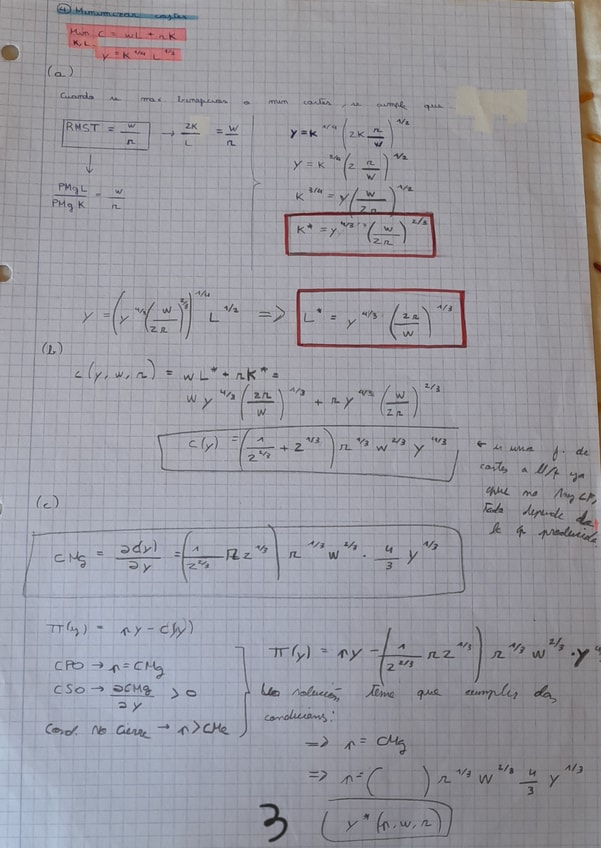 4) Minimizar costes
Min C = wL + rK
K,L
y = K^{1/4} L^{1/2}
(a)
Cuando se max beneficios o min costes, se cumple que
RMST = w/r → 2K/L = w/r
↓
PMgL/PMgK = w/r
y = K^{1/4} (2K r/w)^{1/2}
y = K^{3/4} (2 r/w)^{1/2}
K^{3/4} = y (w/2r)^{1/2}
K* = y^{4/3} (w/2r)^{2/3}
y = (y^{4/3} (w/2r)^{2/3})^{1/4} L^{1/2} => L* = y^{4/3} (2r/w)^{1/3}
(b)
c(y, w, r) = wL* + rK* =
w y^{4/3} (2r/w)^{1/3} + r y^{4/3} (w/2r)^{2/3}
C(y) = (1/2^{2/3} + 2^{1/3}) r^{1/3} w^{2/3} y^{4/3}
← es una f. de
costes a l/p ya
que no hay CF,
todo depende de
la q producida
(c)
CMg = ∂C(y)/∂y = (1/2^{2/3} 2^{1/3}) r^{1/3} w^{2/3} · 4/3 y^{1/3}
π(y) = py - C(y)
CPO → p = CMg
CSO → ∂CMg/∂y > 0
Cond. no cierre → p > CMe
π(y) = py - (1/2^{2/3} 2^{1/3}) r^{1/3} w^{2/3} · y
La solución tiene que cumplir dos
condiciones:
=> p = CMg
=> p = ( ) r^{1/3} w^{2/3} 4/3 y^{1/3}
y*(p, w, r)
3